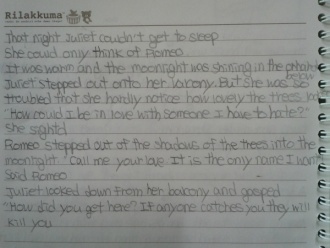 Rilakkuma
That night Juliet couldn't get to sleep
She could only think of Romeo
It was warm and the moonlight was shining in the
below
Juliet stepped out onto her balcony. But she was so
troubled that she hardly notice how lovely the trees
"How could I be in love with someone I have to hate?"
She sighed
Romeo stepped out of the shadows of the trees into the
moonlight. "Call me your love. It is the only name I want
Said Romeo
Juliet looked down from her balcony and gasped
"How did you get here? If anyone catches you they will
kill you